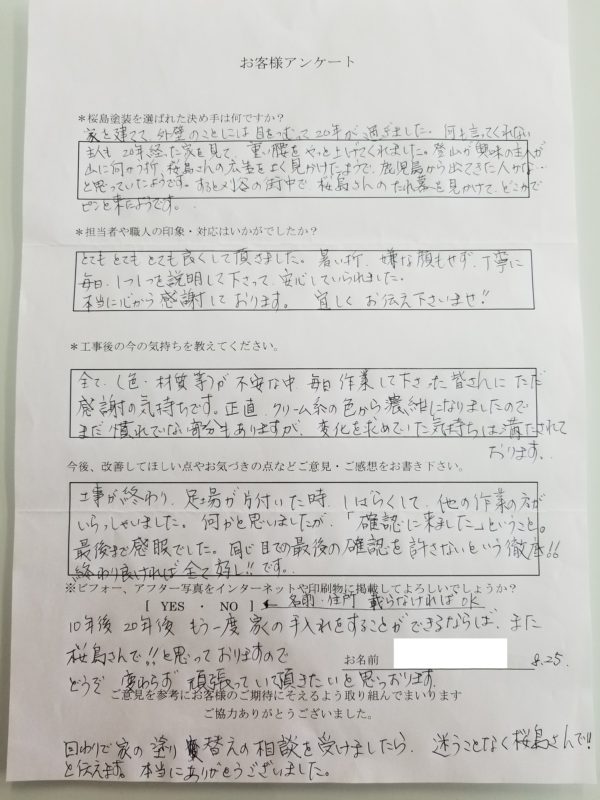 お客様アンケート
＊桜島塗装を選ばれた決め手は何ですか？
家を建てて、外壁のことには目をつむって20年が過ぎました。何も言ってくれない
主人も20年経った家を見て、重い腰をやっと上げてくれました。登山が興味の主人が
山に向かう折、桜島さんの広告をよく見かけたようで、鹿児島から出てきた人かな…
と思っていたようです。すると刈谷の街中で、桜島さんのたれ幕を見かけて、どこかで
ピンと来たようです。
＊担当者や職人の印象・対応はいかがでしたか？
とてもとてもとても良くして頂きました。暑い折、嫌な顔もせず、丁寧に
毎日、1つ1つを説明して下さって、安心していられました。
本当に心から感謝しております。宜しくお伝え下さいませ!!
＊工事後の今の気持ちを教えてください。
全て、(色・材質等)が不安な中、毎日作業して下さった皆さんにただ
感謝の気持ちです。正直、クリーム系の色から濃紺になりましたので
まだ慣れていない部分もありますが、変化を求めていた気持ちは満たされて
おります。
今後、改善してほしい点やお気づきの点などご意見・ご感想をお書き下さい。
工事が終わり、足場が片付いた時、しばらくして、他の作業の方が
いらっしゃいました。何かと思いましたが、「確認に来ました」ということ。
最後まで感服でした。同じ目での最後の確認を許さないという徹底!!
終わり良ければ全て好し!!です。
※ビフォー、アフター写真をインターネットや印刷物に掲載してよろしいでしょうか？
[ YES ・ NO ] ← 名前・住所 載らなければOK
10年後20年後もう一度家の手入れをすることができるならば、また
桜島さんで!!と思っておりますので
お名前 8.25.
どうぞ変わらず頑張っていて頂きたいと思っております。
ご意見を参考にお客様のご期待にそえるよう取り組んでまいります
ご協力ありがとうございました。
回わりで家の塗り替えの相談を受けましたら、迷うことなく桜島さんで!!
と伝えます。本当にありがとうございました。